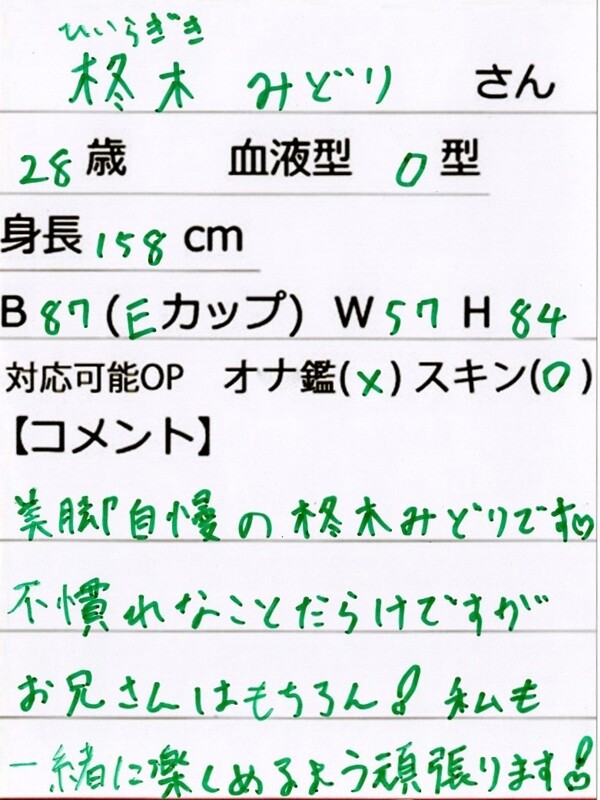 ひいらぎき
柊木 みどり さん
28歳 血液型 O型
身長158cm
B 87(Eカップ) W57 H 84
対応可能OP オナ鑑(×) スキン(○)
【コメント】
美脚自慢の柊木みどりです♡
不慣れなことだらけですが
お兄さんはもちろん！私も
一緒に楽しめるよう頑張ります！